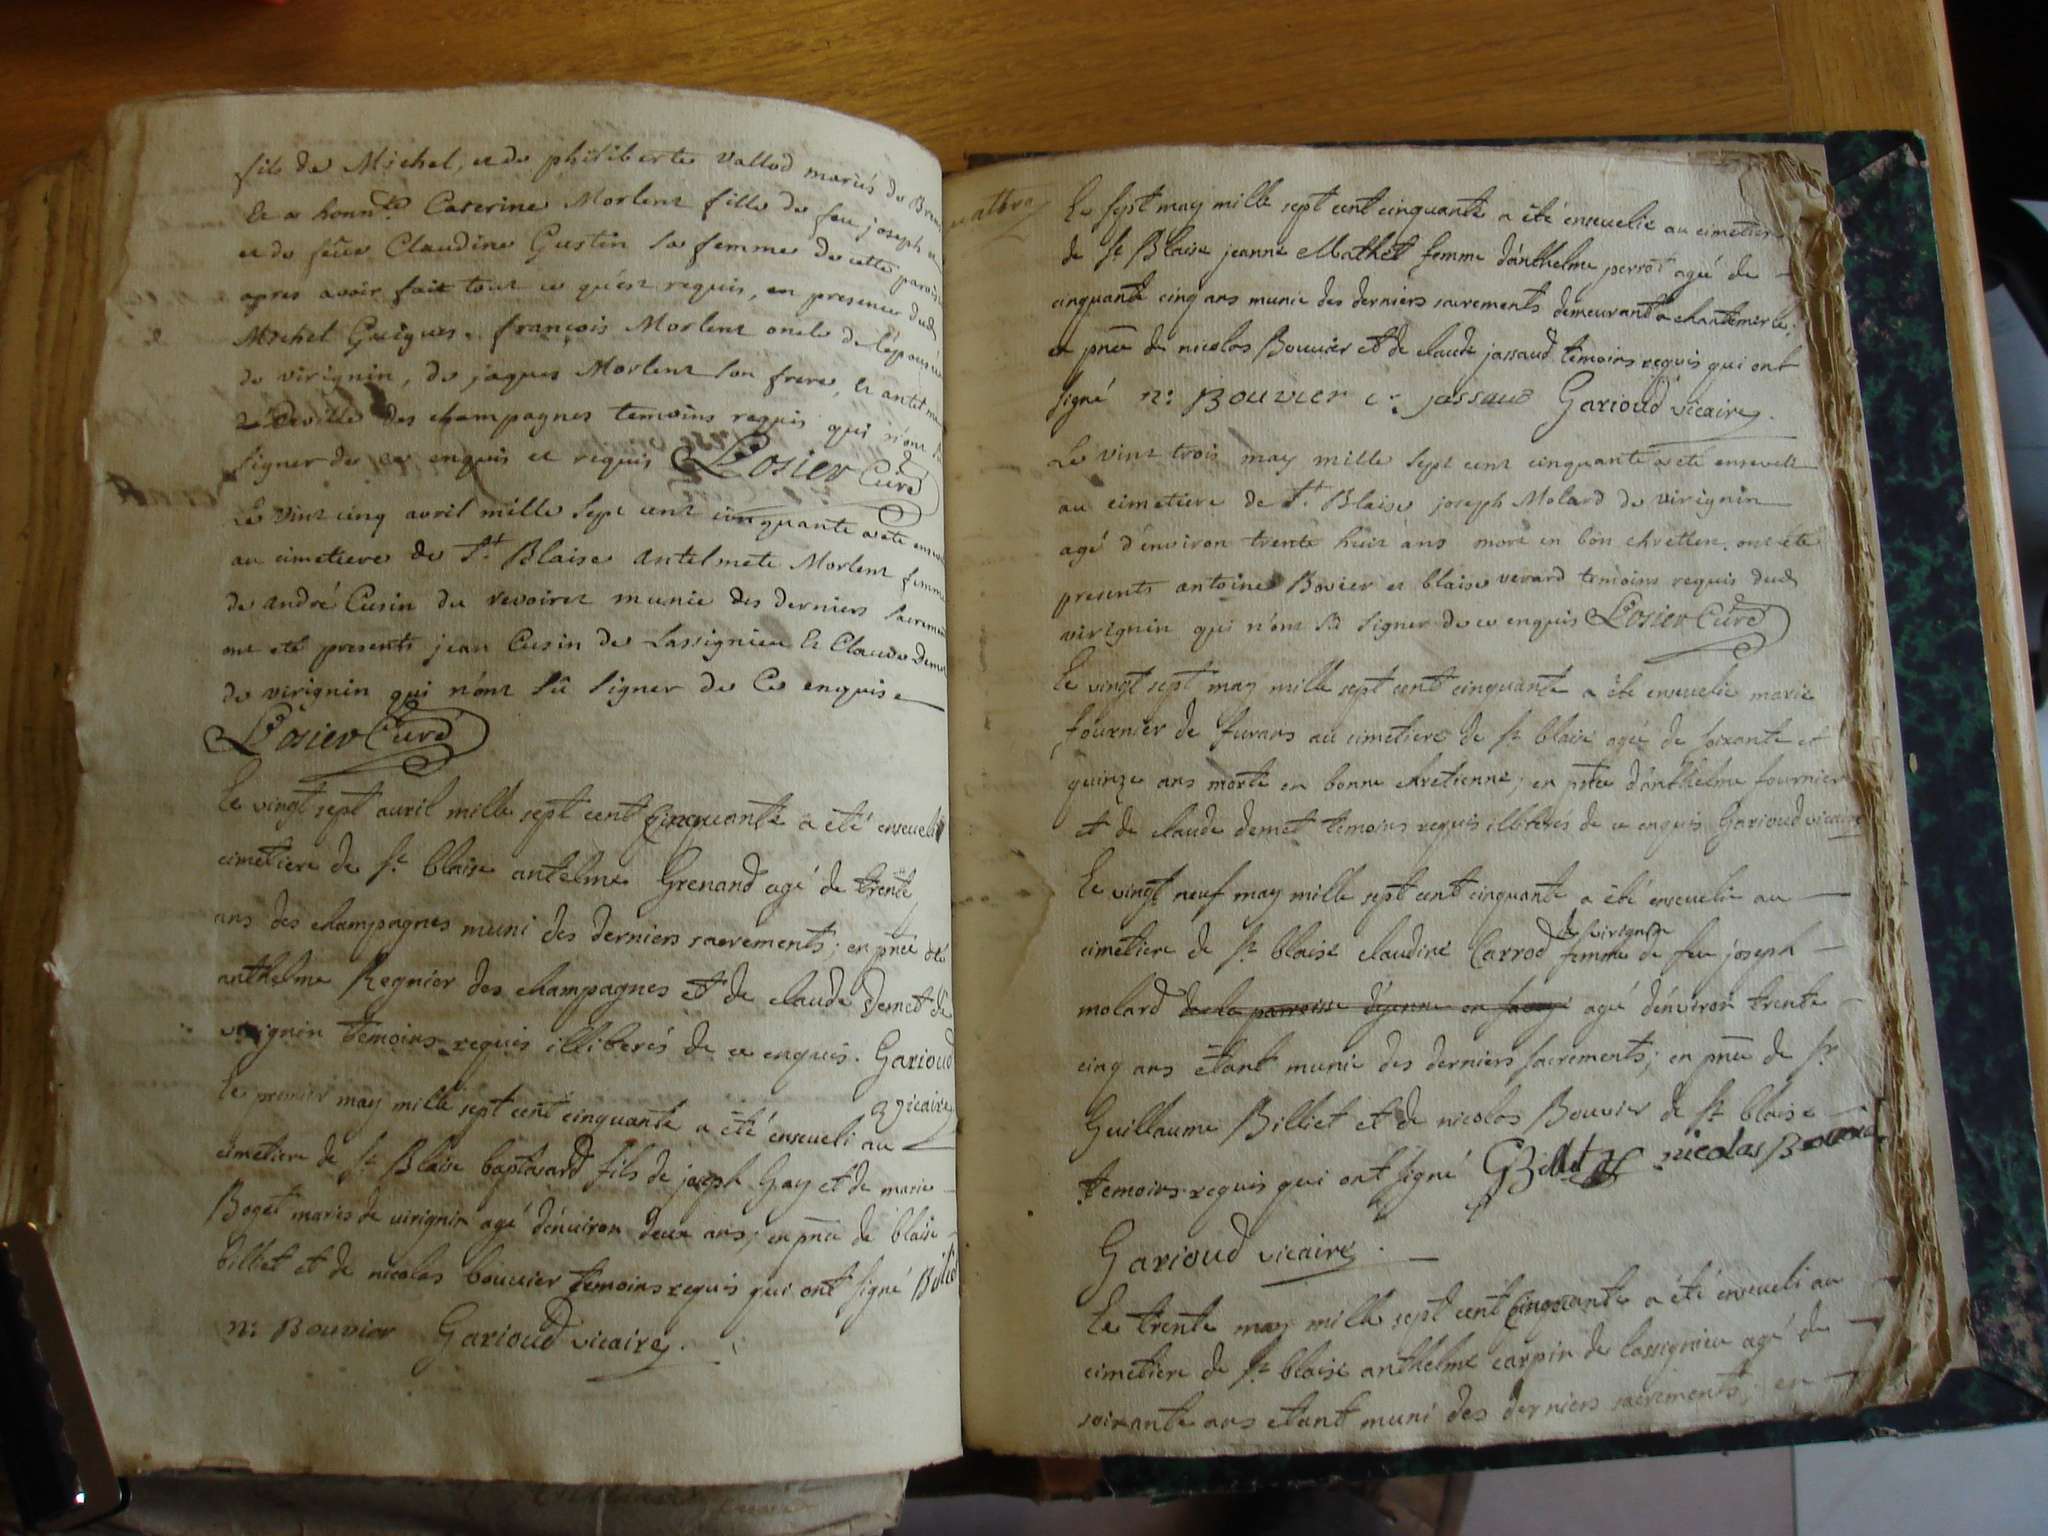 fils de Michel, et de philiberte vallod mariés de
Et a honnte Caterine Morlent fille de feu joseph et
et de feüe Claudine Gustin sa femme de cette paroisse
apres avoir fait tout ce qu'est requis, en presence dud
Michel Guigues, françois Morlent oncle de l'épousée
de virignin, de jaques Morlent son frere, et antelme
des champagnes temoins requis qui n'ont sû
signer de ce enquis et requis Losier Curé
Le vint cinq avril mille sept cent cinquante a eté ensevelie
au cimetiere de St. Blaise antelmete Morlent femme
de andré Cusin du revoiret munie des derniers sacremens
ont eté presents jean Cusin de Lassignieu Et Claude Demet
de virignin qui n'ont sû signer de Ce enquis
Losier Curé
Le vingt sept auril mille sept cent cinquante a été enseueli
cimetiere de st blaise antelme Grenand agé de trente
ans des champagnes muni des derniers sacrements; en pnce de
anthelme Regnier des champagnes et de claude Demet de
virignin temoins requis illiterés de ce enquis. Garioud
vicaire
Le premier may mille sept cent cinquante a été enseueli au
cimetiere de st Blaise baptasard fils de joseph Gay et de marie
Boget mariés de uirignin agé d'énuiron deux ans; en pnce de blaise
billiet et de nicolas bouuier temoins requis qui ont signé Billiet
n: Bouvier Garioud vicaire.
Le sept may mille sept cent cinquante a été enseuelie au cimetiere
de st Blaise jeanne Mathet femme d'anthelme perrot agée de
cinquante cinq ans munie des derniers sacrements demeurant a chantemerle;
en pnce de nicolas Bouuier et de claude jassaud temoins requis qui ont
signé n: Bouvier c: jassaud Garioud vicaire.
Le vint trois may mille sept cent cinquante a eté enseveli
au cimetiere de St. Blaise joseph Molard de virignin
agé d'énviron trente huit ans mort en bon chretien. ont été
presents antoine Bovier et blaise verard temoins requis dud
virignin qui n'ont sû signer de ce enquis Losier Curé
Le vingt sept may mille sept cent cinquante a été enseuelie marie
fournier de furans au cimetiere de st blaise agée de soixante et
quinze ans morte en bonne chretienne; en pnce d'anthelme fournier
et de claude demet temoins requis illiterés de ce enquis Garioud vicaire
Le vingt neuf may mille sept cent cinquante a été enseuelie au
cimetiere de st blaise claudine Carrod de uirignin femme de feu joseph
molard de la paroisse d'éjenne en sauoy agé d'énuiron trente
cinq ans étant munie des derniers sacrements; en pnce de sr
Guillaume Billiet et de nicolas Bouvier de st blaise
temoins requis qui ont signé GBilliet nicolas Bouvier
Garioud vicaire.
Le trente may mille sept cent cinquante a été enseueli au
cimetiere de st blaise anthelme carpin de lassignieu agé de
soixante ans etant muni des derniers sacrements; en